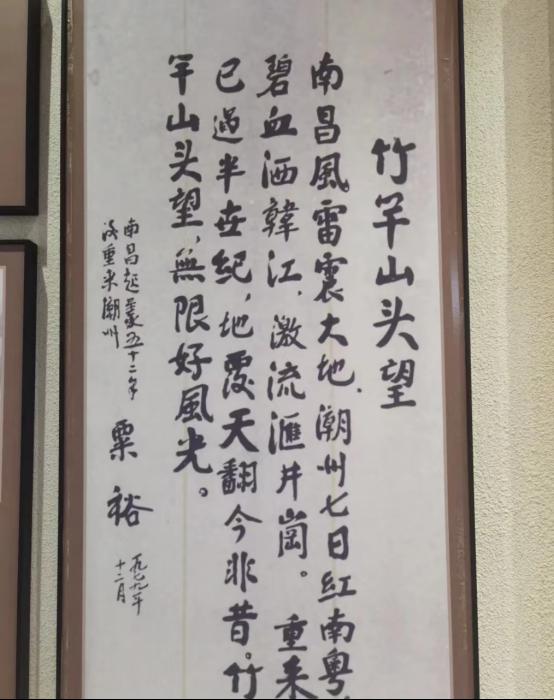 竹竿山头望
南昌風雷震大地,潮州七日红南粤,
碧血洒韓江,激流滙井崗。重来
已過半世紀,地覆天翻今非昔。竹
竿山头望,無限好風光。
南昌起義五十二年
後重来潮州
粟裕
一九七九年
十二月